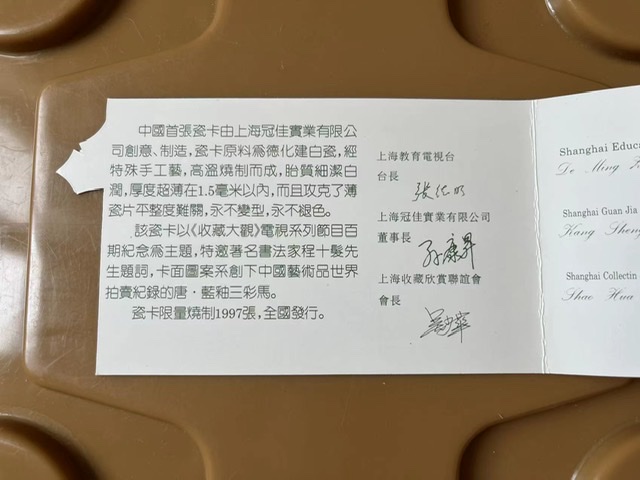 中國首張瓷卡由上海冠佳實業有限公
司創意、制造，瓷卡原料為德化建白瓷，經
特殊手工藝，高溫燒制而成，胎質細潔白
潤，厚度超薄在1.5毫米以內，而且攻克了薄
瓷片平整度難關，永不變型，永不褪色。
該瓷卡以《收藏大觀》電視系列節目百
期紀念為主題，特邀著名書法家程十髮先
生題詞，卡面圖案系創下中國藝術品世界
拍賣紀錄的唐·藍釉三彩馬。
瓷卡限量燒制1997張，全國發行。
上海教育電視台
台長
上海冠佳實業有限公司
董事長
孫康昇
上海收藏欣賞聯誼會
會長
吳少華
Shanghai Educa
De Ming
Shanghai Guan Jia
Kang Sheng
Shanghai Collectin
Shao Hua